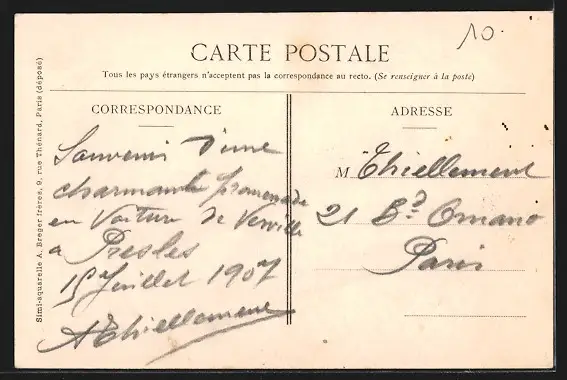 10
CARTE POSTALE
Tous les pays étrangers n'acceptent pas la correspondance au recto. (Se renseigner à la poste)
CORRESPONDANCE
Souvenir d'une
charmante promenade
en Voiture de Verville
a Presles
15 Juillet 1907
AThiellement
ADRESSE
M Thiellement
21 Bd Ornano
Paris
Simi-aquarelle A. Breger frères, 9, rue Thénard, Paris (déposé)